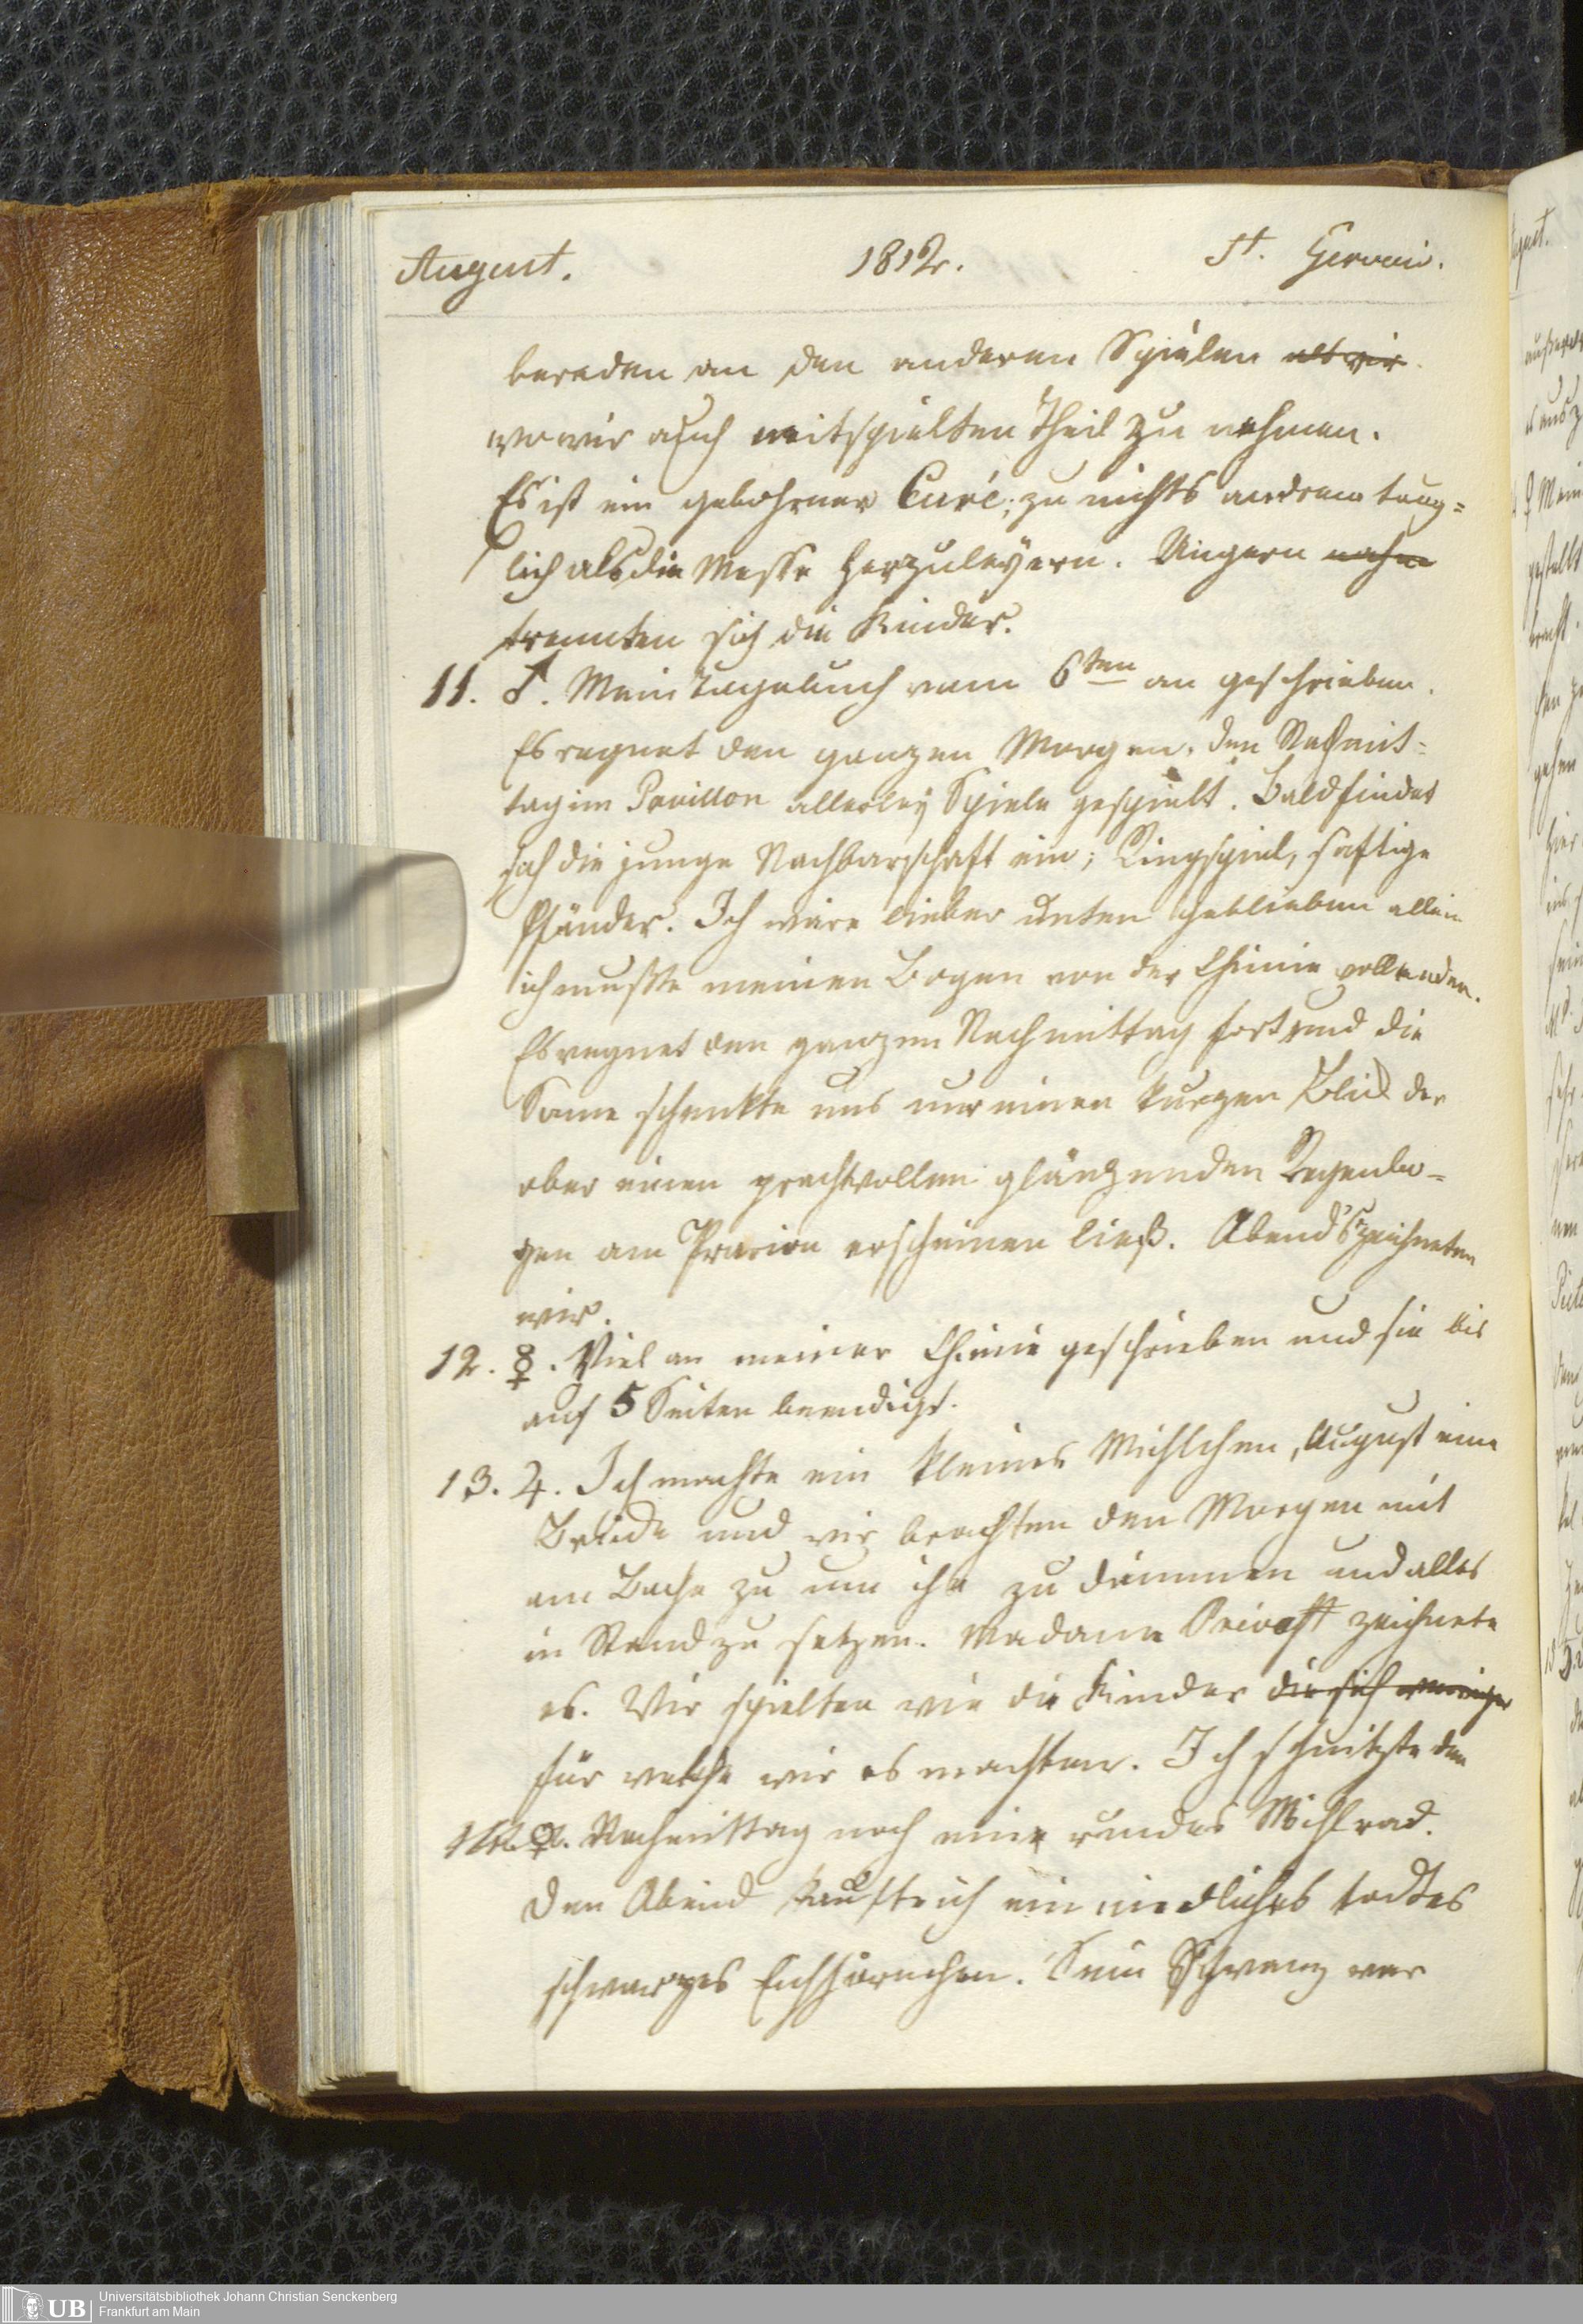 August. 1812. St. Gervais.
bereden an den anderen Spielen als wir
wo wir auch mitspielten Theil zu nehmen.
Es ist ein gebohrner Curé; zu nichts anderem taug=
lich als die Messe herzuleyern. Ungern nahm
trennten sich die Kinder.
11. ♂. Mein Tagebuch vom 6ten an geschrieben.
Es regnet den ganzen Morgen. den Nachmit=
tag im Pavillon allerley Spiele gespielt. Bald findet
sich die junge Nachbarschaft ein; Ringspiel, saftige
Pfänder. Ich wäre lieber unten geblieben allein
ich mußte meinen Bogen von der Chimie vollenden.
Es regnet den ganzen Nachmittag fort und die
Sonne schenkte uns nur einen kurzen Blick der
aber einen prachtvollen glänzenden Regenbo=
gen am erscheinen ließ. Abend's zeichneten
wir.
12. ☿. Viel an meiner Chimie geschrieben und sie bis
auf 5 Seiten beendigt.
13. ♃. Ich machte ein kleines Mühlchen, August eine
Brücke und wir brachten den Morgen mit
am Bache zu um ihn zu dämmen und alles
in Stand zu setzen. Madame Prevost zeichnete
es. Wir spielten wie die Kinder die sich
für welche wir es machten. Ich schnitzte den
14. ♀. Nachmittag noch ein rundes Mühlrad.
Den Abend kaufte ich ein niedliches todtes
schwarzes Eichhörnchen. Sein Schwanz war
UB Universitätsbibliothek Johann Christian Senckenberg
Frankfurt am Main